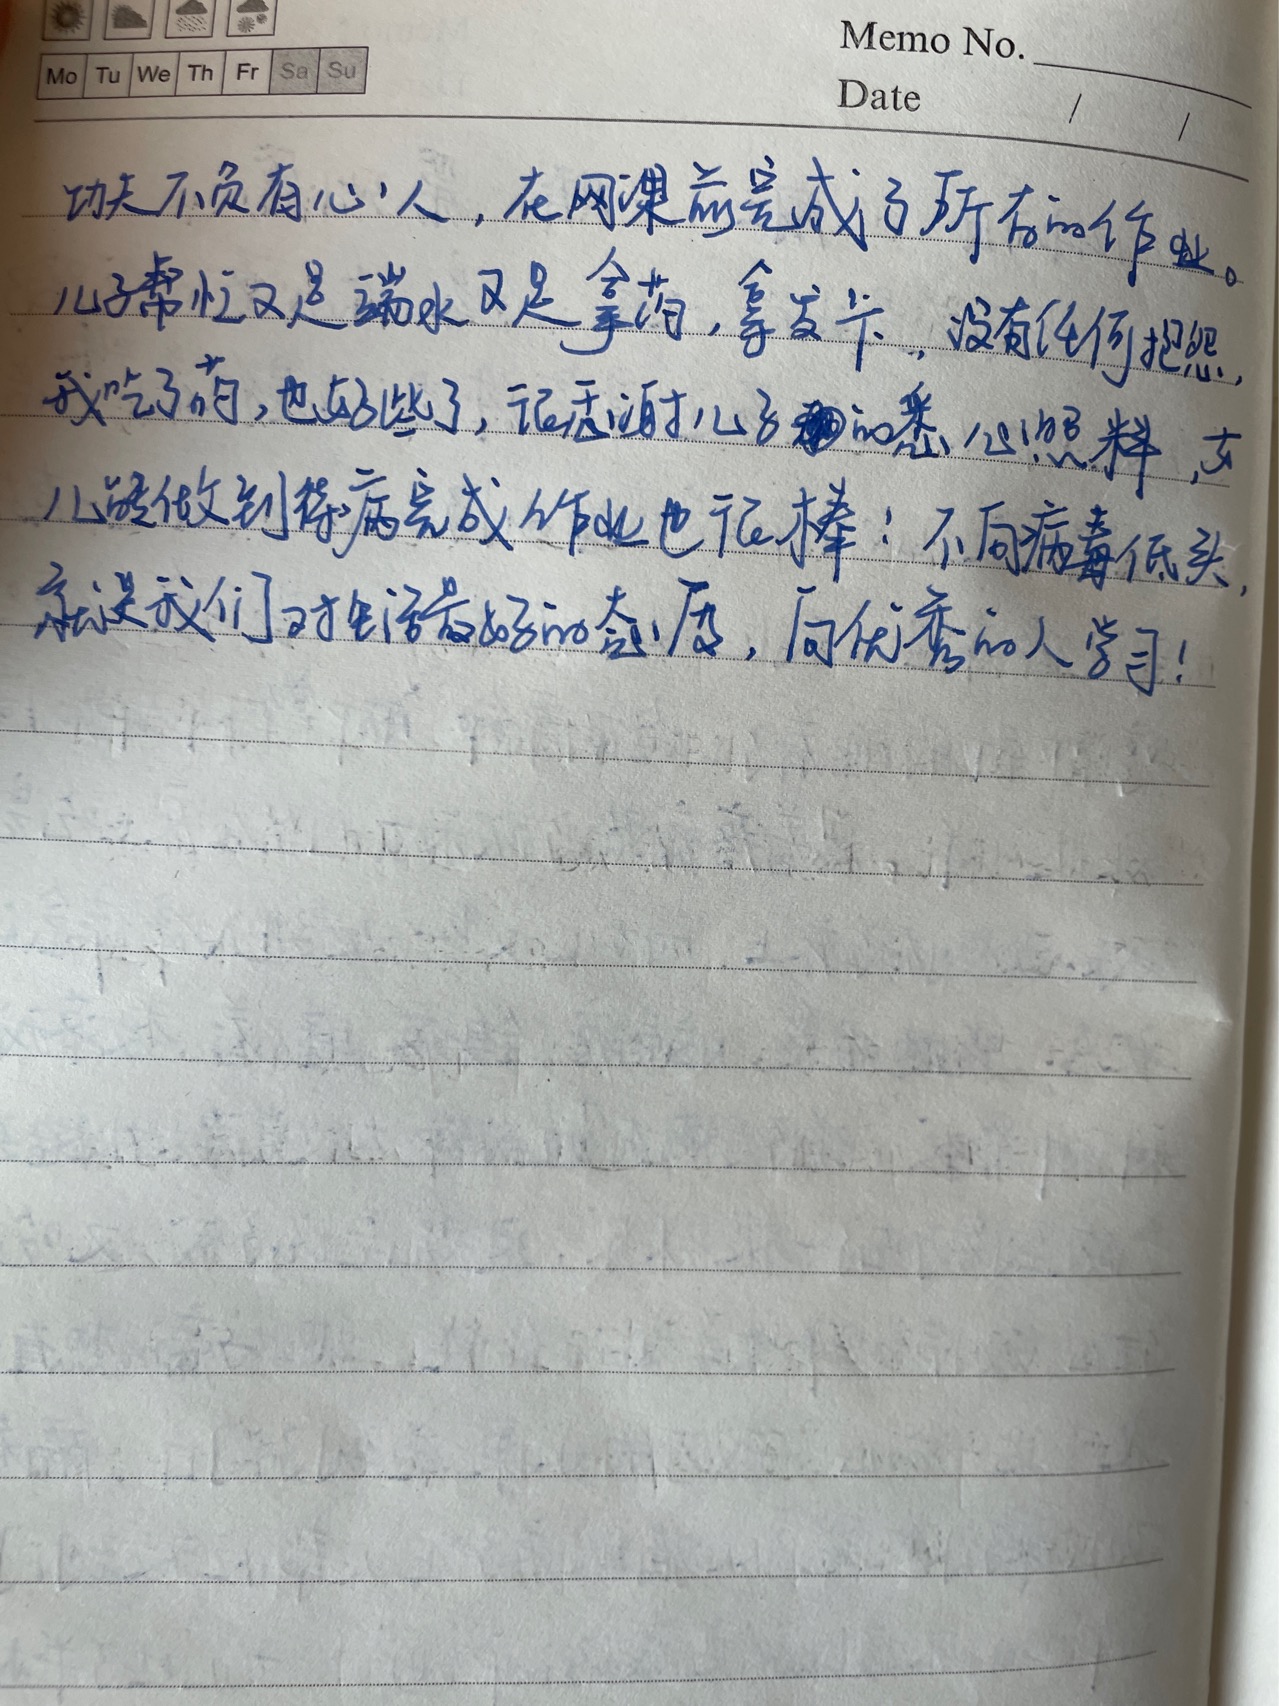 Memo No.
Mo Tu We Th Fr Sa Su
Date / /
功夫不负有心人，在网课前完成了所有的作业。
儿子帮忙又是端水又是拿药，拿发卡，没有任何抱怨，
我吃了药，也好些了，很感谢儿子的悉心照料，女
儿能做到带病完成作业也很棒！不向病毒低头，
就是我们对生活最好的态度，向优秀的人学习！